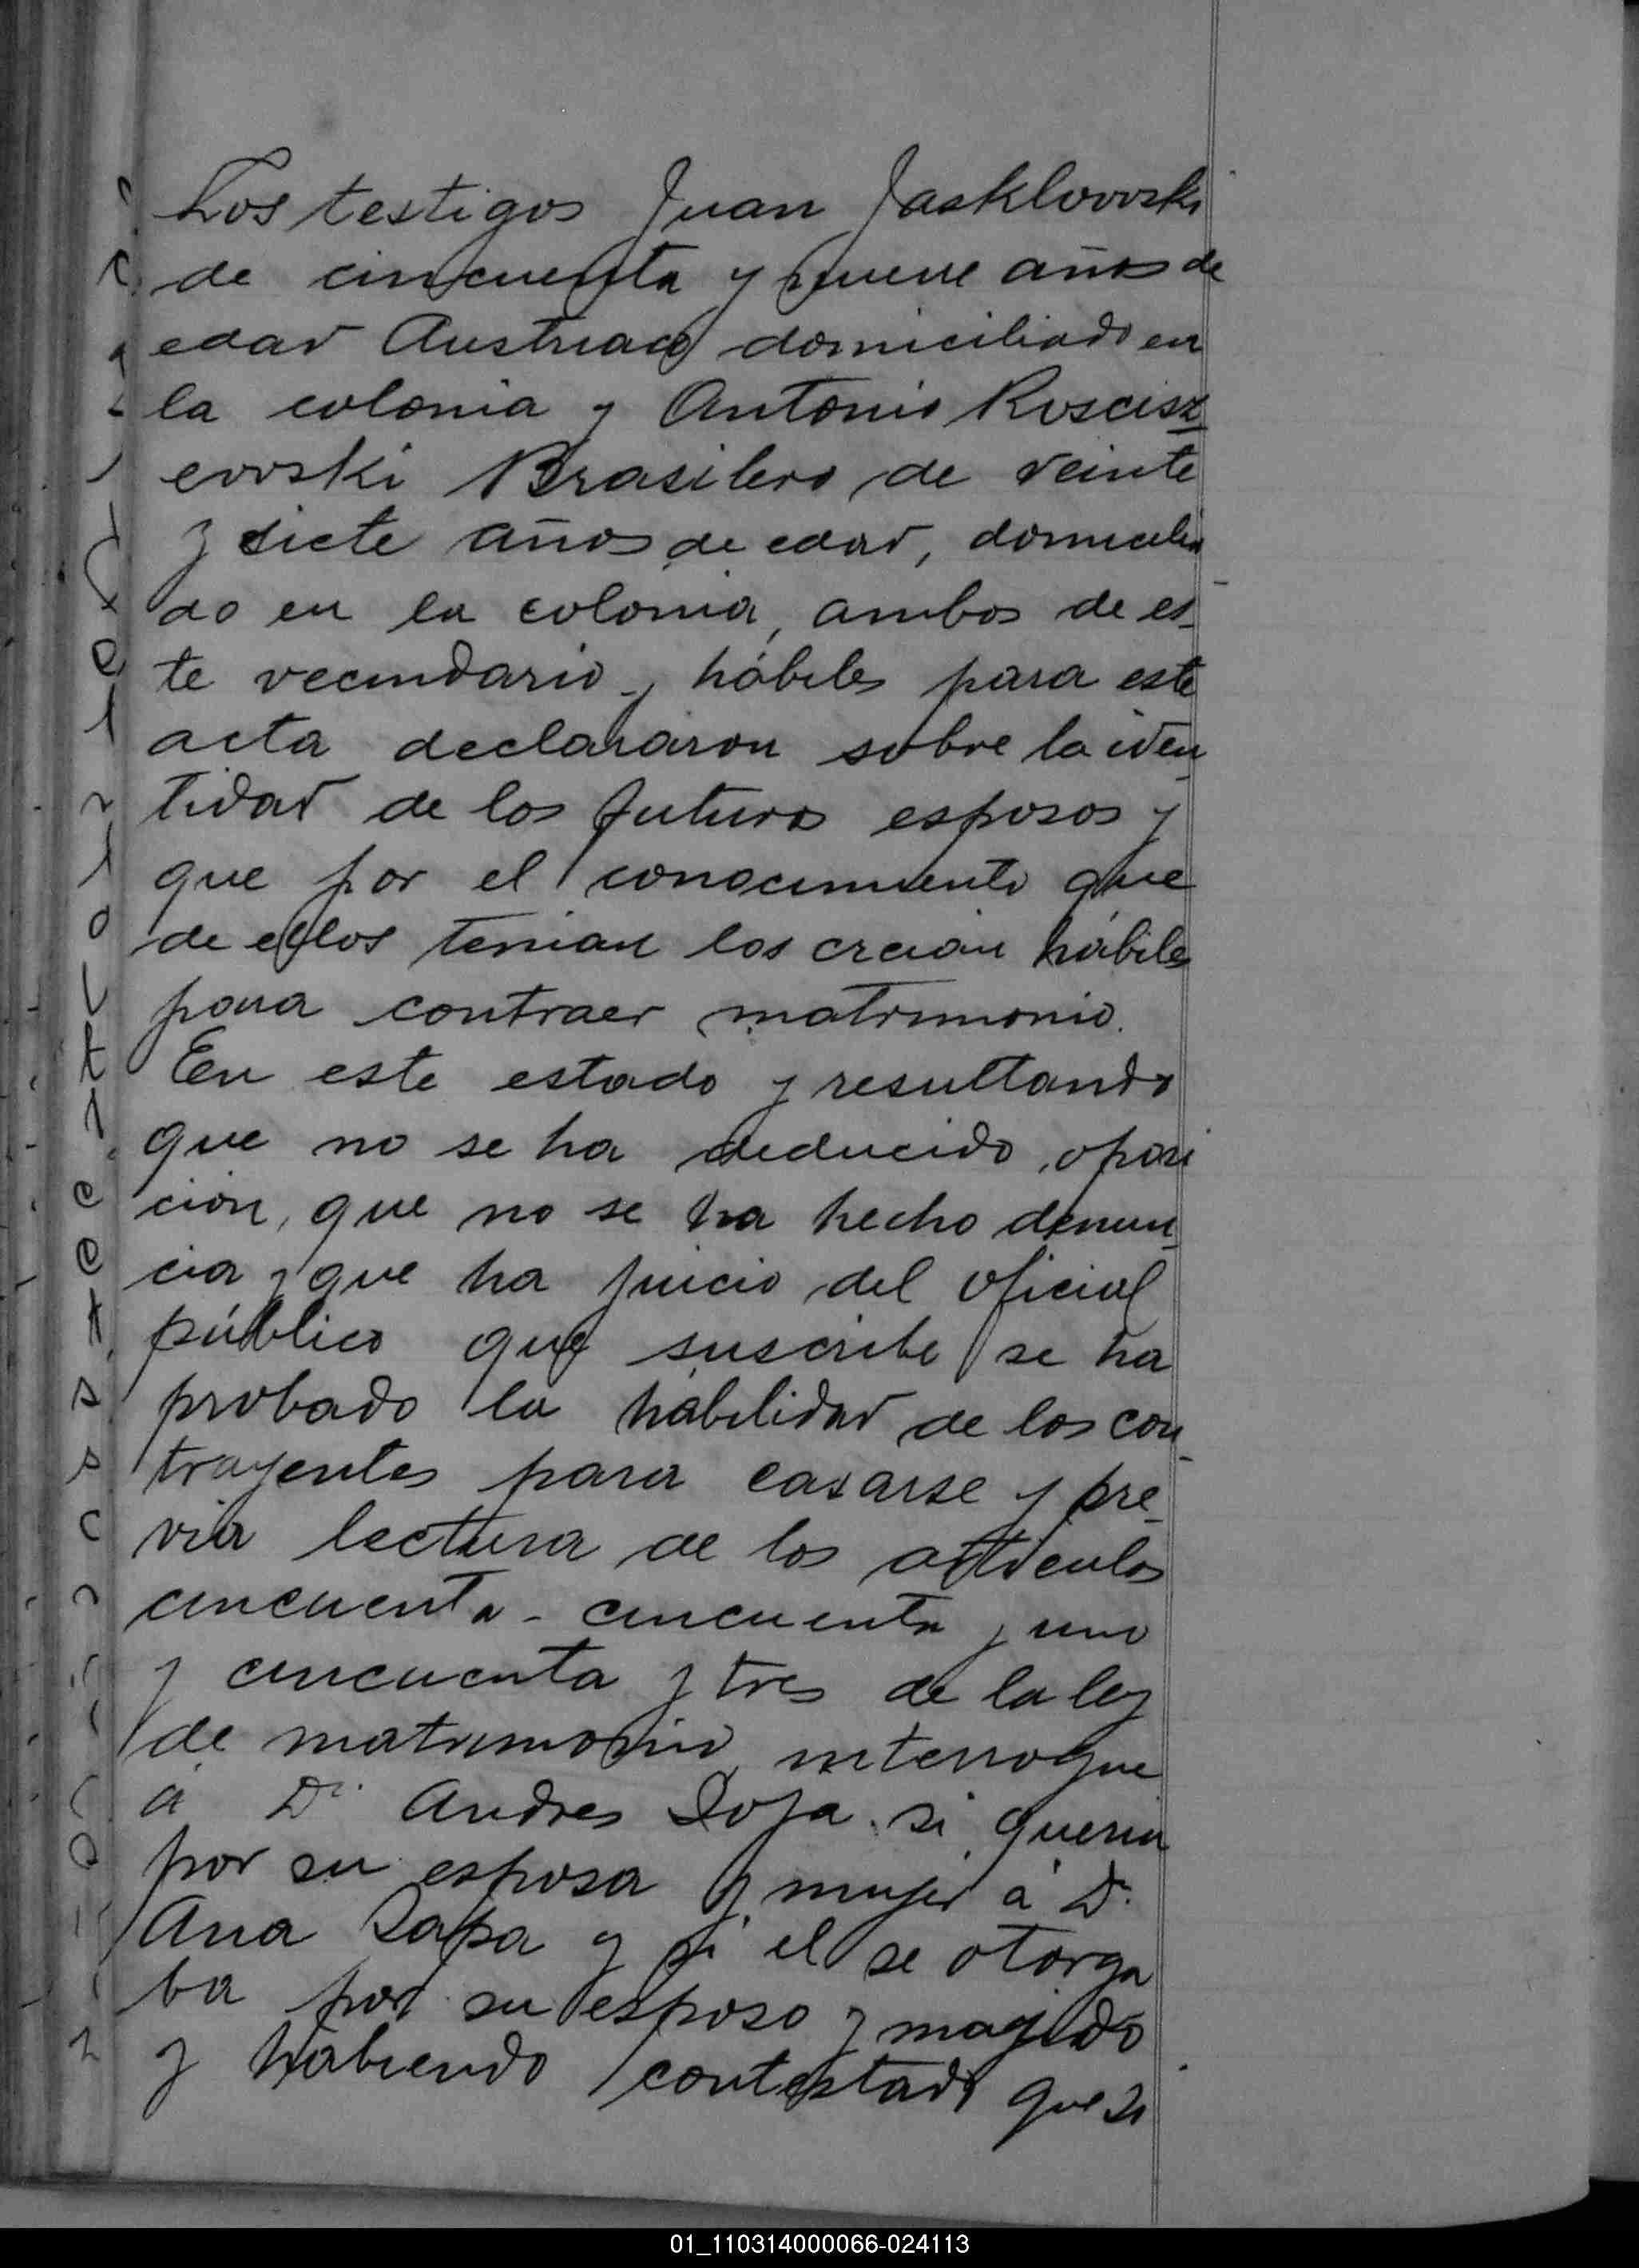 Los testigos Juan Jasklowski
de cincuenta y nueve años de
edad Austriaco domiciliado en
la colonia y Antonio Roscisz
ewski Brasilero de veinte
y siete años de edad, domicilia
do en la colonia, ambos de es-
te vecindario y hábiles para este
acta declararon sobre la iden
tidad de los futuros esposos y
que por el conocimiento que
de ellos tenian los creian hábiles
para contraer matrimonio.
En este estado y resultando
que no se ha deducido oposi
cion, que no se ha hecho denun
cia y que ha juicio del oficial
público que suscribe se ha
probado la habilidad de los con
trayentes para casarse y pre-
via lectura de los articulos
cincuenta - cincuenta y uno
y cincuenta y tres de la ley
de matrimonio interrogue
á Dn Andres Soja si queria
por su esposa y mujer á Da
Ana Sapa y si el se otorga
ba por su esposo y marido
y habiendo contestado que si
01_110314000066-024113